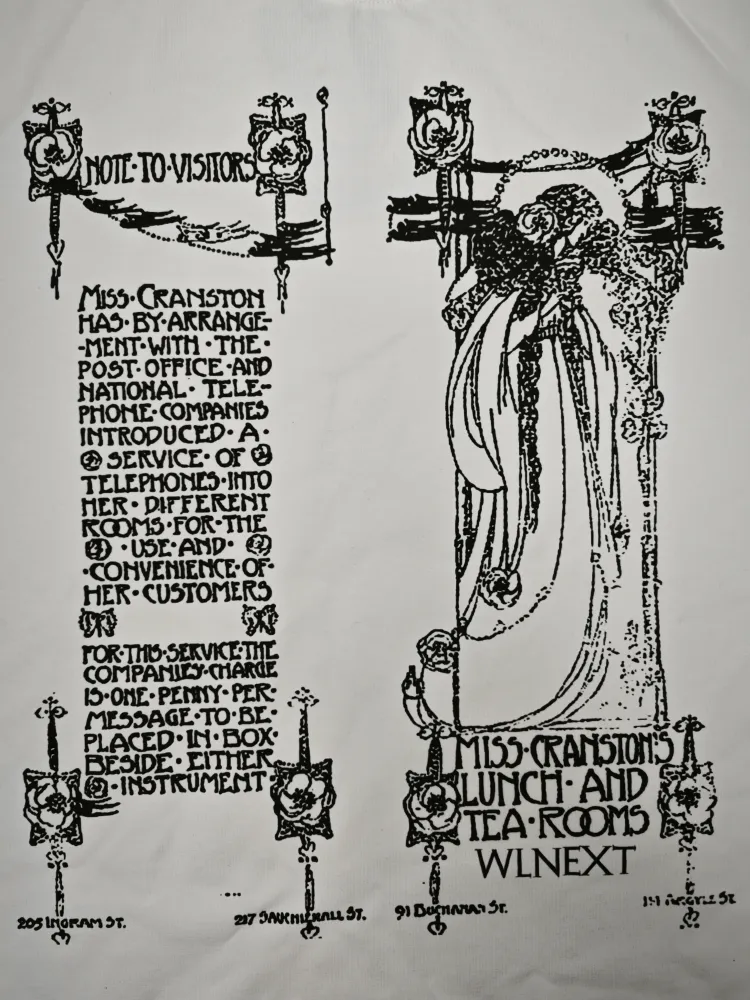 NOTE·TO·VISITORS
MISS·CRANSTON
HAS·BY·ARRANGE-
-MENT·WITH·THE·
POST·OFFICE·AND
NATIONAL·TELE-
PHONE·COMPANIES
INTRODUCED·A·
SERVICE·OF
TELEPHONES·INTO
HER·DIFFERENT
ROOMS·FOR·THE
·USE·AND·
·CONVENIENCE·OF·
HER·CUSTOMERS
FOR·THIS·SERVICE·THE
COMPANIES·CHARGE
IS·ONE·PENNY·PER·
MESSAGE·TO·BE·
PLACED·IN·BOX·
BESIDE·EITHER
·INSTRUMENT
205 INGRAM ST.
217 SAUCHIEHALL ST.
MISS·CRANSTON'S
LUNCH·AND
TEA·ROOMS
WLNEXT
91 BUCHANAN ST.
ARGYLE ST.